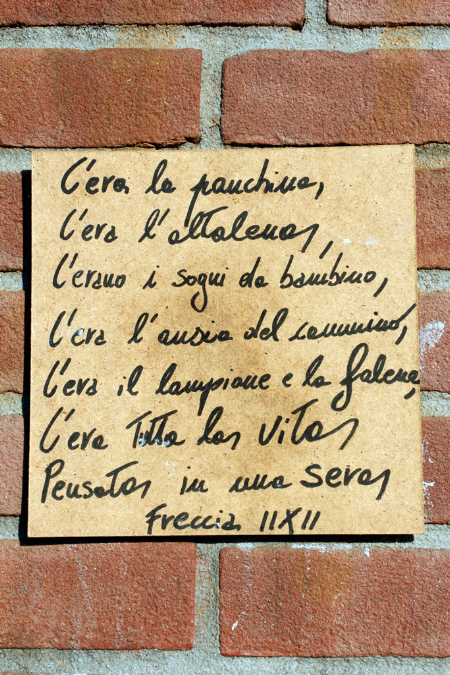 C'era la panchina,
C'era l'altalena,
C'erano i sogni da bambino,
C'era l'ansia del cammino,
C'era il lampione e la falena,
C'era tutta la vita
Pensata in una sera
Freccia 11X11